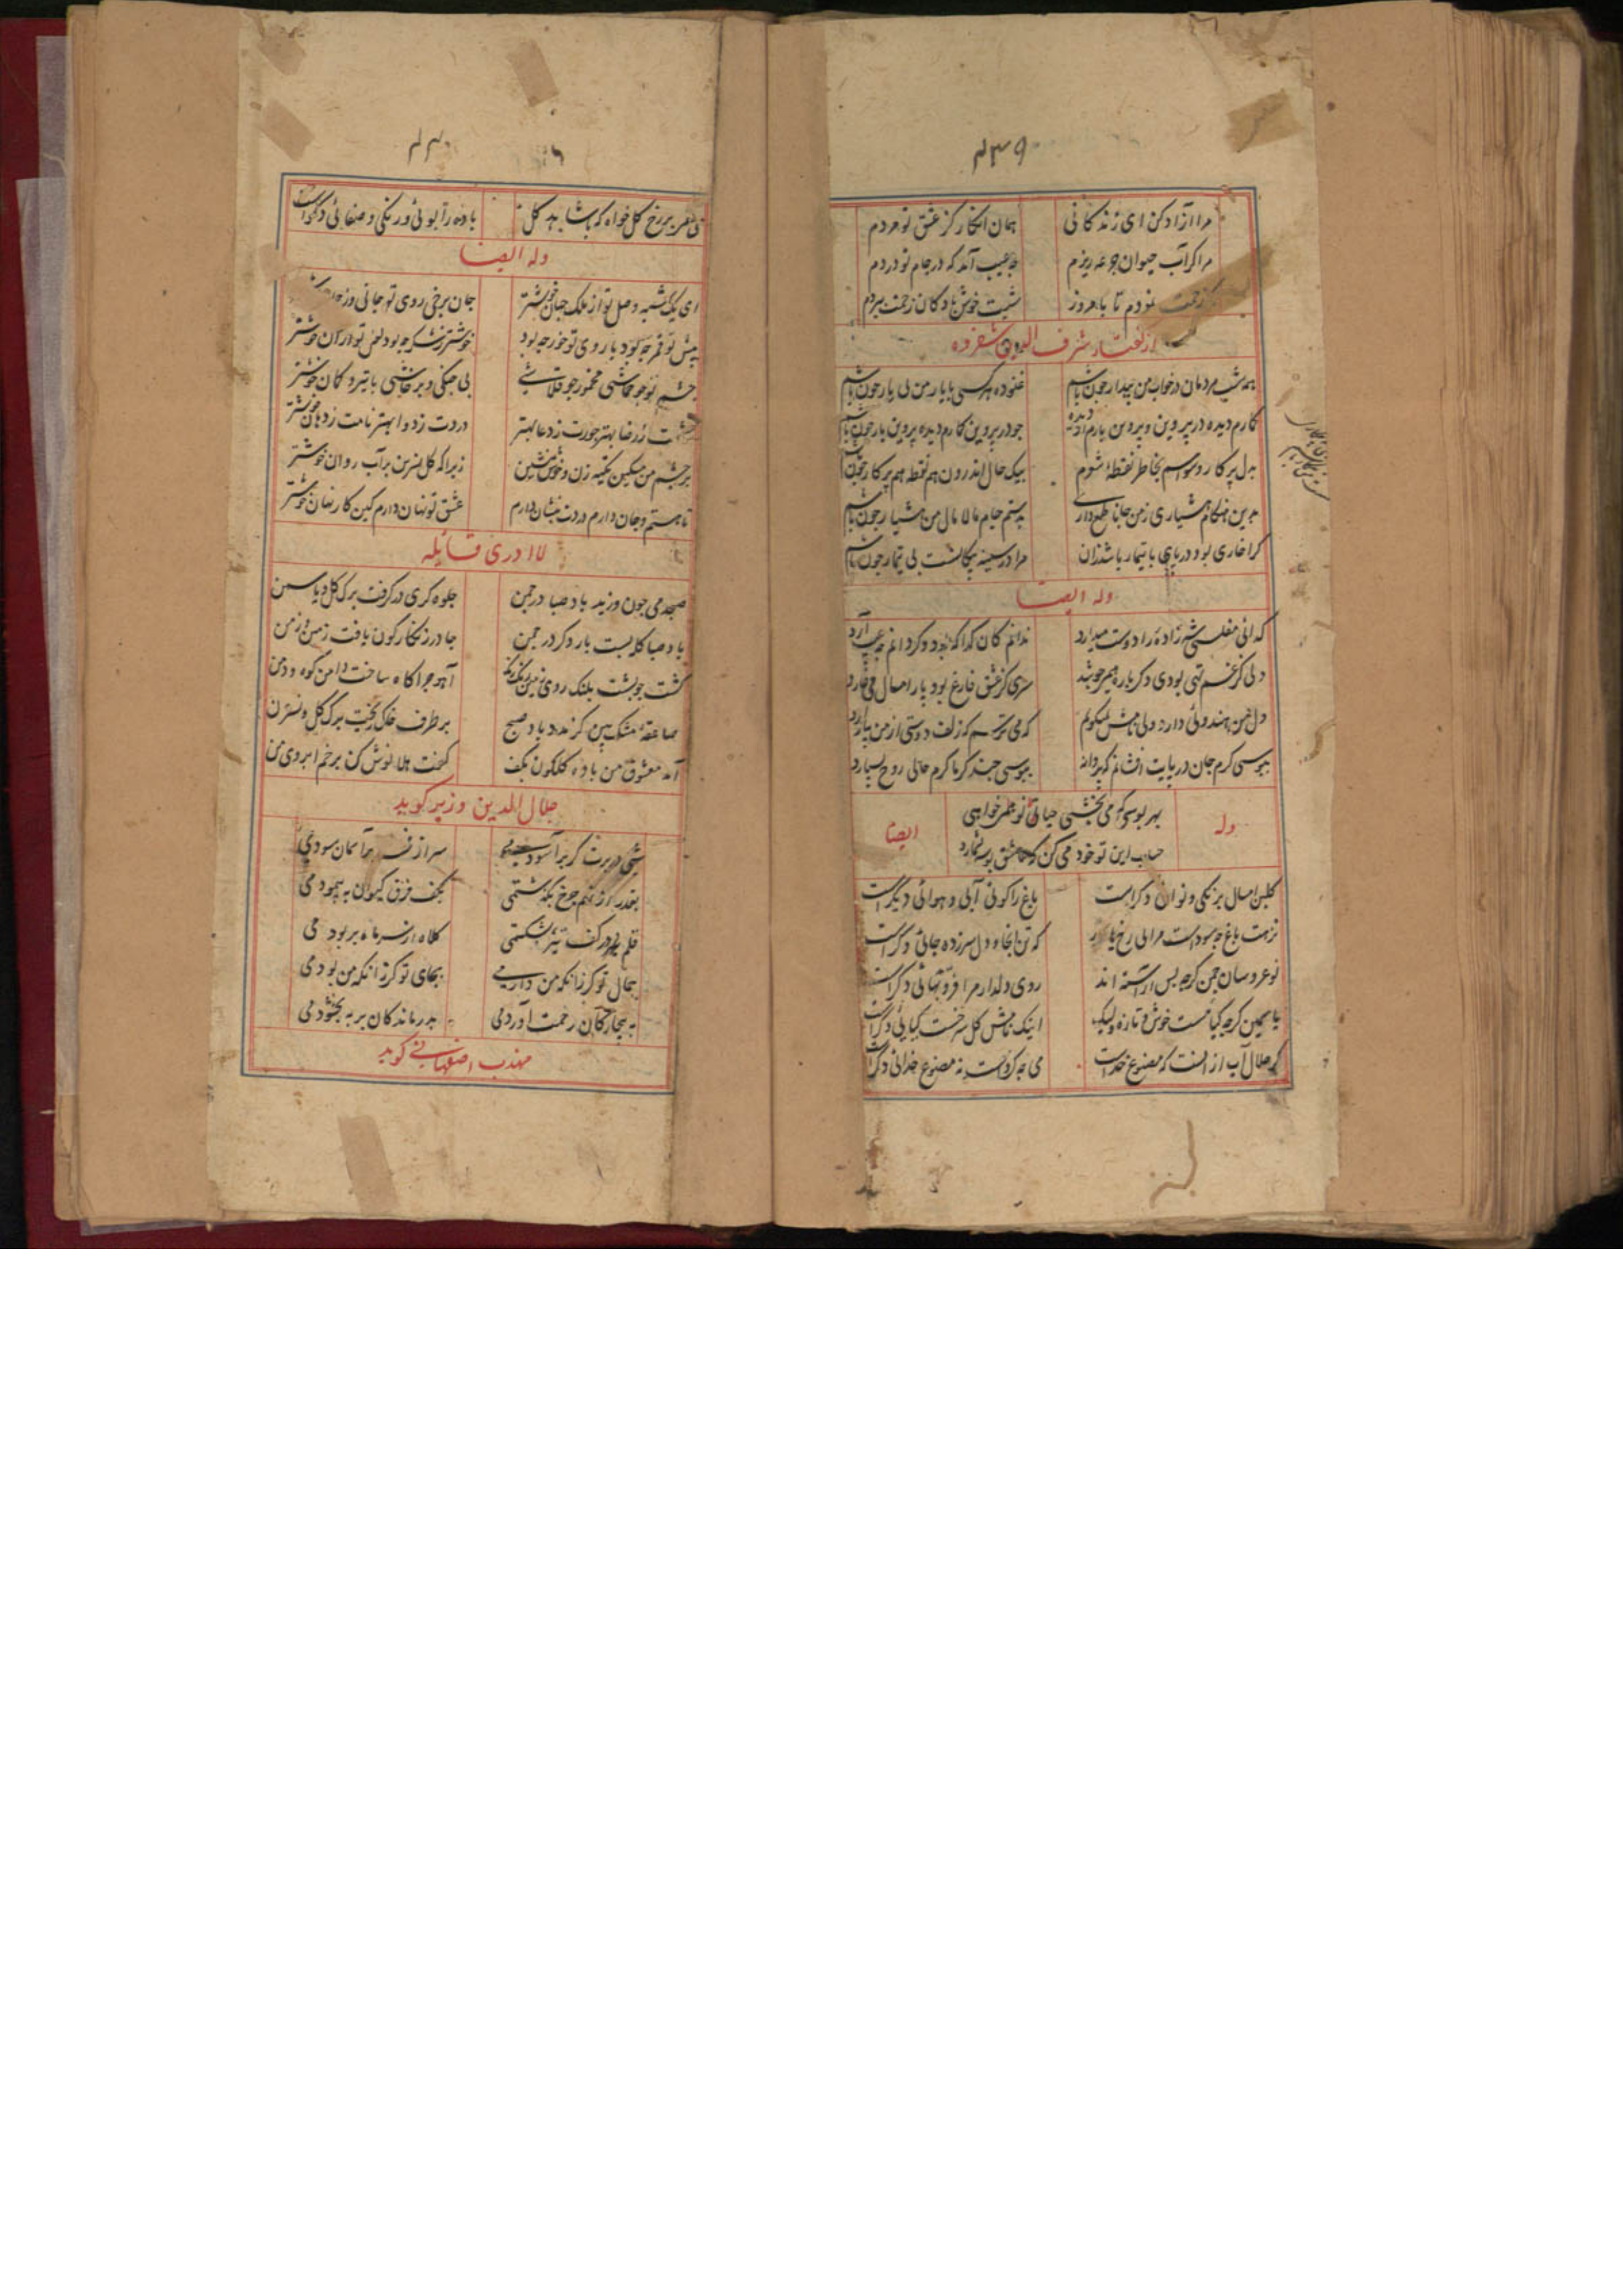 ۴۳۹
مرا آزاد کن ای زندکانی همان انکار کز عشق تو مردم
مرا کر آب حیوان جرعه ریزم چه عیب آمد که در جام تو دردم
زحمت نمودم تا بامروز شبت خوش باد کان زحمت ببردم
از کفتار شرف الدین شفروه
همه شب مردمان در خواب من بیدار چون باشم غنوده هر کسی با یار من بی یار چون باشم
کارم دیده در پروین و پروین بارم از دیده چو در پروین کارم دیده پروین بار چون باشم
بدل پر کار وسواسم بخاطر نقطه اشوم بیک حال اندرون هم نقطه هم پر کار چون باشم
بدین هنکام هشیاری ز من جانا طمع داری بدستم جام مالامال من هشیار چون باشم
کرا خاری بود در پای با تیمار باشد زان مرا در سینه پیکانست بی تیمار چون باشم
وله ایضا
کدائی مفلسی شه زاده را دوست میدارد ندانم کان کدا که بود وکر دانم چه عیب آرد
دلی کز غم تهی بودی دکر باره همی جوشد سری کز عشق فارغ بود پار امسال می خارد
دل من هندوئی دارد ولی نامش نمیکویم که می ترسم که زلف دوستی از من بیازارد
ببوسی کرم جان در پایت افشانم که پروانه ببوسی چند کرماکرم حالی روح بسپارد
وله بهر بوسی که می بخشی حیاتی نو همی خواهی ایضا
حساب این تو خود می کن که عاشق بوسه نشمارد
کلبن امسال برنکی و نوائی دکر است باغ را کوئی آبی و هوائی دیکر است
نزهت باغ چه سود است مرا بی رخ یار که تن اینجا و دل سرزده جائی دکر است
نوعروسان چمن کرچه بس آراسته اند روی دلدار مرا فرّ و بهائی دکر است
یاسمین کرچه کیاهست خوش و تازه ولیک اینک نامش کل سرخست کیائی دکر است
کر حلال آب از آنست که مصنوع خداست می چه کردست نه مصنوع خدائی دکر است
۴۴۰
می لعل بر رخ کل خواه که با شاهد کل باده را بوئی و رنکی و صفائی دکر است
وله ایضا
ای یک شبه وصل تو از ملک جهان خوشتر جان برخی روی تو جانی وز جان خوشتر
پیش تو قمر چه بود با روی تو خور چه بود خوشتر ز شکر چه بود لعل تو از آن خوشتر
چشم تو چو جماشی مخمور چو قلاشی بی جنکی و پرخاشی با تیر و کمان خوشتر
ز رضا بهتر جورت ز دعا بهتر دردت ز دوا بهتر نامت ز دهان خوشتر
بر چشم من مسکین تکیه زن و خوش بنشین زیرا که کل نسرین بر آب روان خوشتر
تا هستم و جان دارم دردت بنشان دارم عشق تو نهان دارم کین کار نهان خوشتر
لا ادری قائله
صبحدمی چون وزید باد صبا در چمن جلوه کری در کرفت برک کل و یاسمن
باد صبا کله بست بار دکر در چمن چادر زنکارکون یافت زمین و زمن
کشت چو پشت پلنک روی زمین رنک رنک آهو چراکاه ساخت دامن کوه و دمن
صاعقه مشک بین کز مدد باد صبح بر طرف خاک ریخت برک کل و نسترن
آمد معشوق من باده کلکون بکف کفت هلا نوش کن بر خم ابروی من
جلال الدین وزیر کوید
شبی در برت کر برآسودمی سر از فخر بر آسمان سودمی
بقدر از نهم چرخ بکذشتمی بکف فرق کیوان بپیمودمی
قلم در کف تیر بشکستمی کلاه از سر ماه بربودمی
جمال تو کر زانکه من دارمی بجای تو کر زانکه من بودمی
به بیچارکان رحمت آوردمی بدرماندکان بر ببخشودمی
مهذب اصفهانی کوید